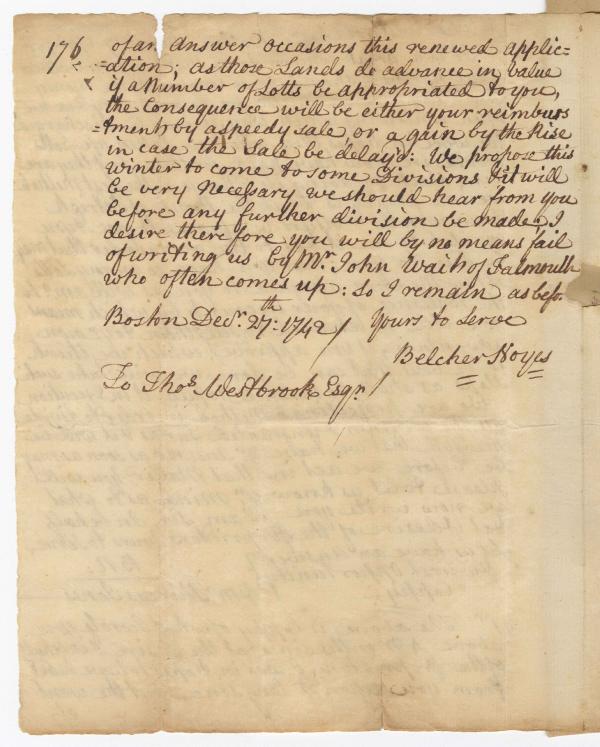 176 of an Answer occasions this renewed applic=
=ation; as those Lands do advance in value
if a Number of Lotts be appropriated to you,
the Consequence will be either your reimburs
=tment by a speedy sale, or a gain by the Rise
in case the Sale be delay'd: We propose this
winter to come to some Divisions & it will
be very Necessary we should hear from you
before any further division be made; I
desire therefore you will by no means fail
of writing us by Mr. John Wait of Falmouth
who often comes up: So I remain as befo.
Boston Decr. 27th: 1742 / Yours to Serve
Belcher Noyes
To Thos. Westbrook Esqr. /